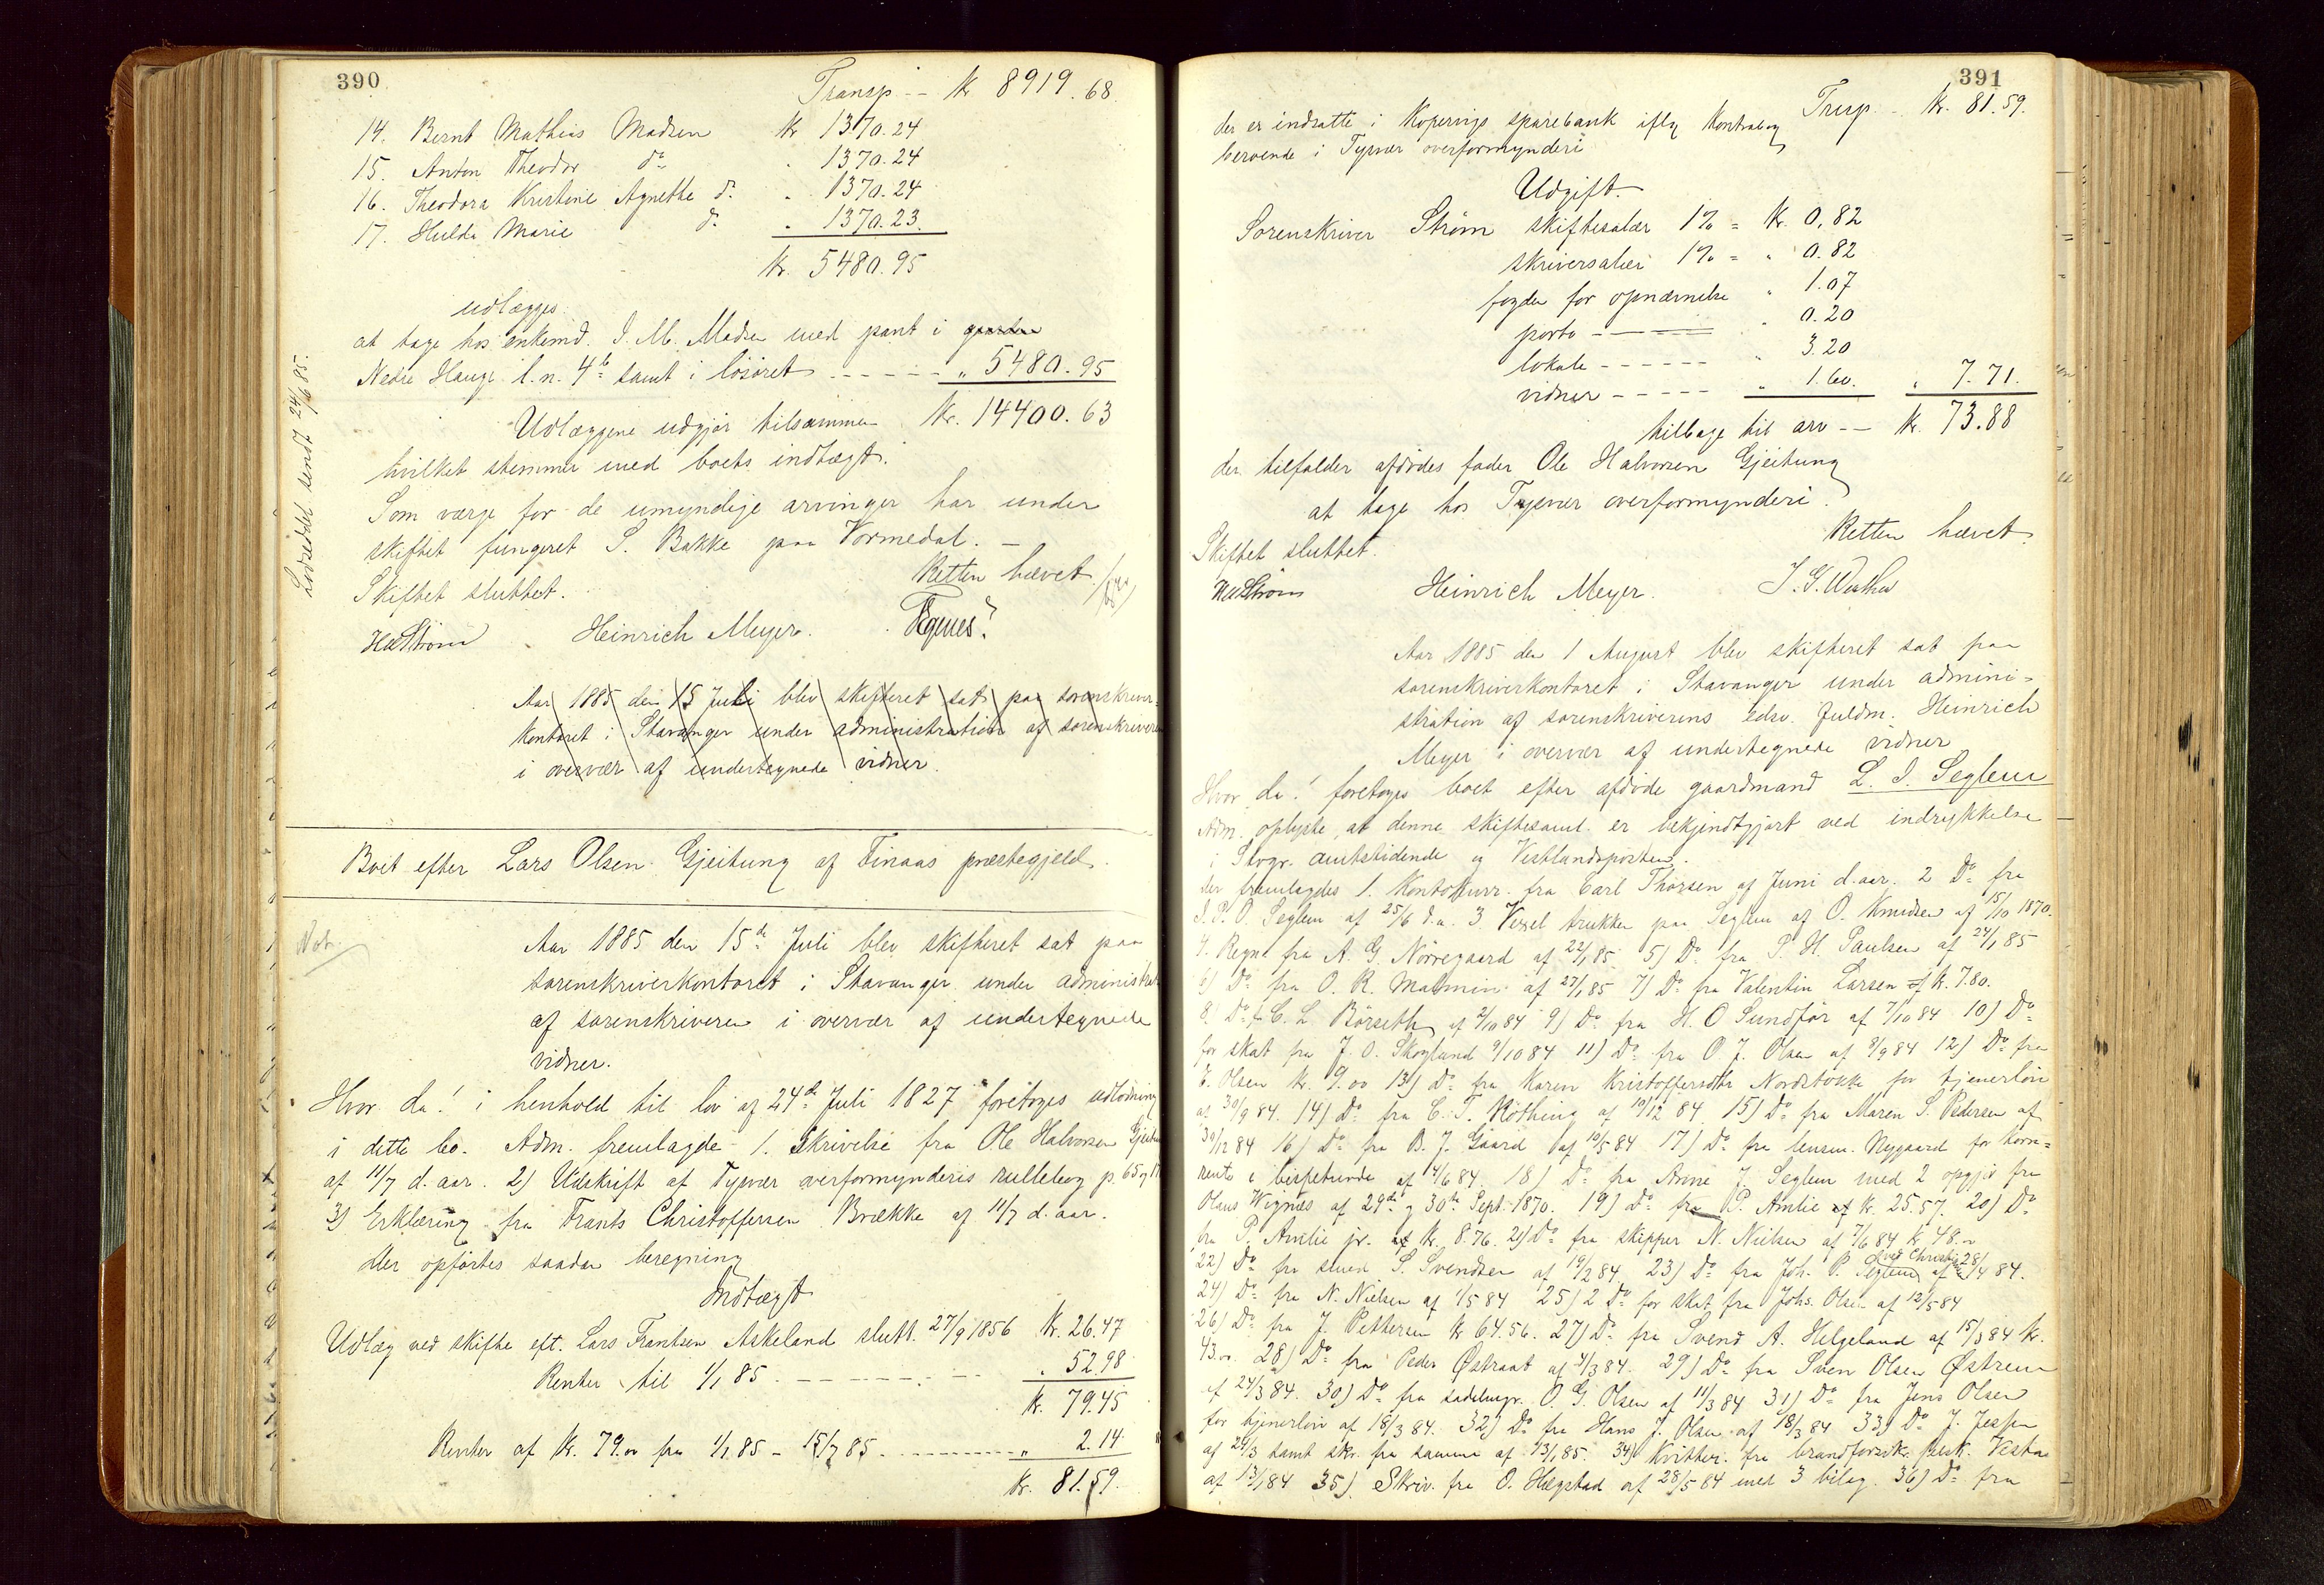 390
Transp -- Kr 8919.68.
14. Bernt Mathias Madsen Kr 1370.24
15. Anton Theodor do " 1370.24
16. Theodora Kristine Agnethe do " 1370.24
17. Hulda Marie do " 1370.23.
Kr. 5480.95
udlægges
at tage hos enkemd. J. M. Madsen med pant i
Nedre Hauge l.n. 4b samt i løsøret ----- " 5480.95
Lodseddel sendt 24/6 85.
Udlæggene udgjør tilsammen Kr. 14400.63
hvilket stemmer med boets indtægt.
Som værge for de umyndige arvinger har under
skiftet fungeret S. Bakke paa Vormedal. —
Retten hævet.
Skiftet sluttet.
HStrøm Heinrich Meyer.
Aar 1885 den 15 Juli blev skifteret sat paa sorenskriver-
kontoret i Stavanger under administration af sorenskriveren
i overvær af undertegnede vidner.
Boet efter Lars Olsen Gjeitung af Finaas præstegjeld.
Aar 1885 den 15de Juli blev skifteret sat paa
sorenskriverkontoret i Stavanger under administrat
af sorenskriveren i overvær af undertegnede
vidner.
Hvor da! i henhold til lov af 24de Juli 1827 foretoges udlodning
i dette bo. Adm. fremlagde 1. Skrivelse fra Ole Halvorsen Gjeitu
af 11/7 d.aar. 2) Udskrift af Tysvær overformynderis rullebog p. 65 og
3) Erklæring fra Frants Christoffersen Brække af 11/7 d.aar.
der opførtes saadan beregning
Indtægt
Udlæg ved skifte eft. Lars Frantsen Askeland slutt. 27/9 1856 Kr. 26.47
Renter til 1/1 85. ------- " 52.98
Kr. 79.45
Renter af Kr. 79.00 fra 1/1 85 - 15/7 85. ------ " 2.14
Kr. 81.59.
391
Trsp. - Kr. 81.59.
der er indsatte i Kopervigs sparebank iflg kontrabog
beroende i Tysvær overformynderi
Udgift
Sorenskriver Strøm skiftesalær 1% = Kr. 0,82
skriversalær 1% = " 0.82
fogden for opnævnelse " 1.07
porto ---- " 0.20
lokale ----- " 3.20
vidner ----- " 1.60. " 7.71.
tilbage til arv -- Kr. 73.88
der tilfalder afdødes fader Ole Halvorsen Gjeitung
at tage hos Tysvær overformynderi.
Retten hævet
Skiftet sluttet.
HStrøm Heinrich Meyer.
Aar 1885 den 1 August blev skifteret sat paa
sorenskriverkontoret i Stavanger under admini=
stration af sorenskriverens edsv. fuldm. Heinrich
Meyer i overvær af undertegnede vidner
Hvor da! foretoges boet efter afdøde gaardmand L. J. Seglem
Adm. oplyste, at denne skiftesaml. er bekjendtgjort ved indrykkelse
i Stvgr. amtstidende og Vestlandsposten.
der fremlagdes 1. Kontokurr. fra Carl Thorsen af Juni d.aar. 2 Do fra
J. P. O. Seglem af 25/6 d.a. 3 Vexel trukken paa Seglem af O. Knudsen af 15/10 1870.
4. Regn. fra A. G. Nørregaard af 22/1 85. 5) Do fra P. H. Paulsen af 24/1 85
6) Do fra O. R. Malmin af 27/1 85 7) Do fra Valentin Larsen Kr. 7.80.
8. Do fr C. L. Børseth af 2/10 84 9) Do fra H. O Sundfør af 7/10 84 10) Do
for skat fra J. O. Skoglund 9/10 84 11) Do fra O. J. Olsen af 8/9 84 12) Do fra
E. Olsen Kr. 9.00 13) Do fra Karen Kristoffersdtr Nordstokke for tjenerløn
af 30/9 84. 14) Do fra C. T. Køthing af 10/12 84. 15) Do fra Maren S. Pedersen af
30/12 84 16) Do fra B. J. Gaard af 10/5 84 17) Do fra lensm. Nygaard for Korn=
rente i bispetiende af 4/6 84. 18) Do fra Anne J. Seglem med 2 opgjør fra
Olaus Wignæs af 29de og 30te Sept. 1870. 19) Do fra P. Amlie Kr. 25.57. 20) Do
fra P. Amlie jr. Kr. 8.76. 21) Do fra skipper N. Nielsen af 7/6 84 Kr 48.00
22) Do fra smed S. Svendsen af 19/2 84 23) Do fra Joh. P. Seglem af 28/4 84.
24) Do fra N. Nielsen af 1/5 84 25) 2 Do for skat fra Johs. Olsen af 12/5 84
26) Do fra J. Pettersen Kr 64.56. 27) Do fra Svend A. Helgeland af 15/3 84 Kr.
43.00. 28) Do fra Peder Østraat af 4/3 84. 29) Do fra Sven Olsen Østrem
af 24/3 84. 30) Do fra sadelmgr. O. G. Olsen af 11/3 84 31) Do fra Jens Olsen
for tjenerløn af 18/3 84. 32) Do fra Hans J. Olsen af 18/3 84 33) Do J. Jespen
af 24/3 samt skr. fra samme af 13/1 85. 34) Kvitter. fra brandforsikr.selsk. Vesta
af 13/1 84 35) Skriv. fra O. Hegstad af 28/5 84 med 3 bilag. 36) Do fra